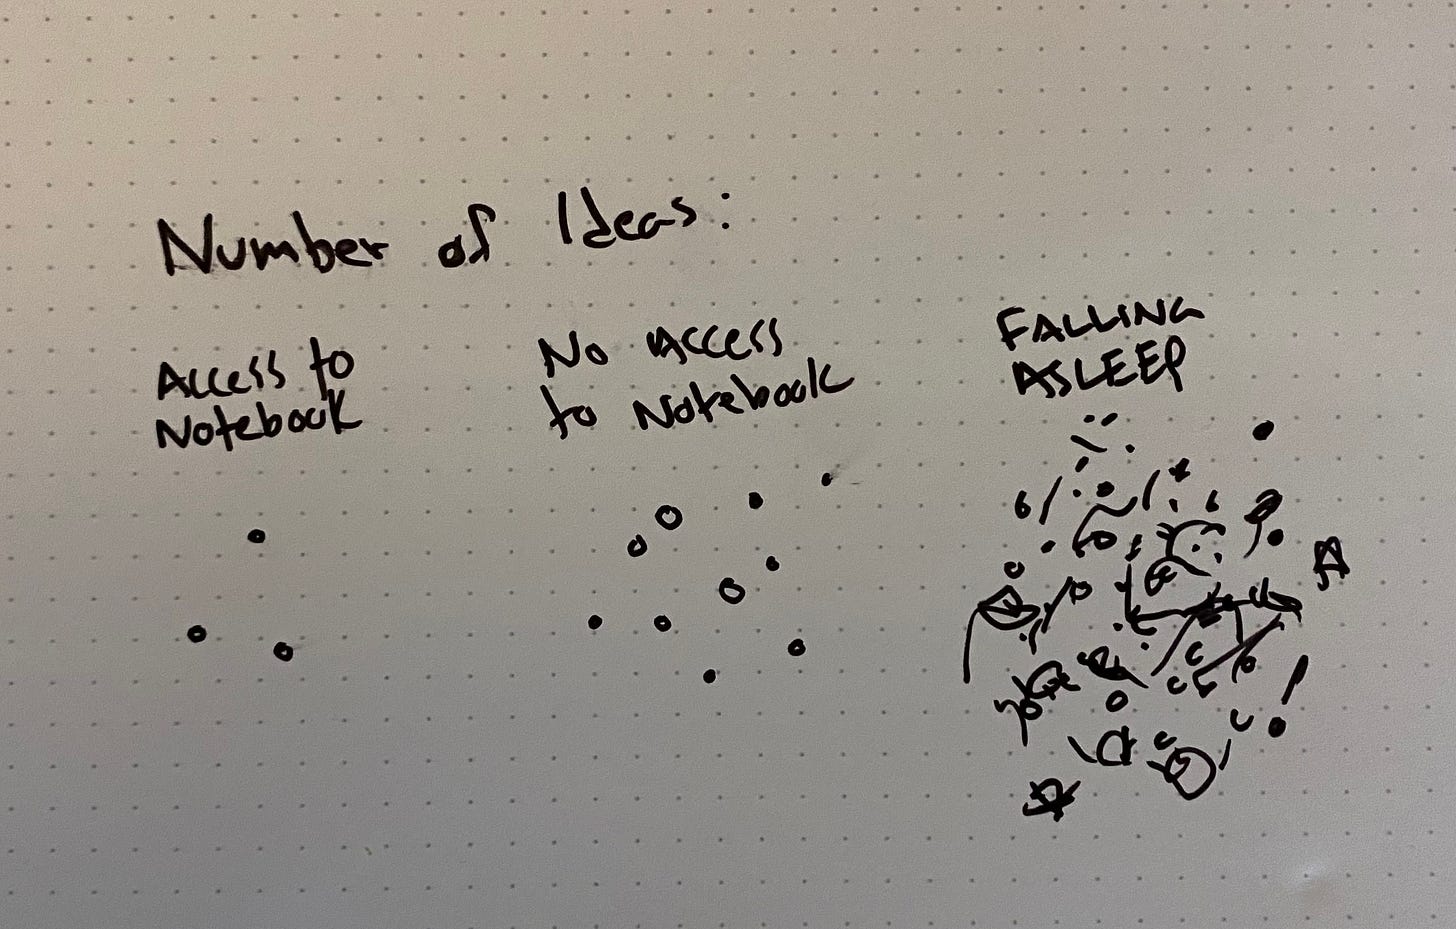 Number of Ideas:
Access to
Notebook
No Access
to Notebook
FALLING
ASLEEP